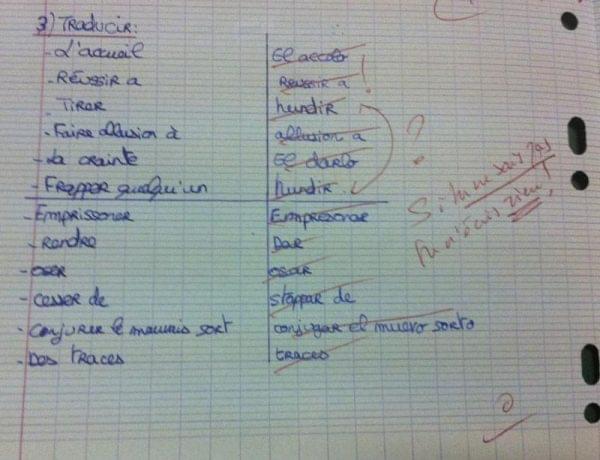 3) Traducir:
- L'accueil El accolo
- Réussir a Reussir a !
- Tirer hundir
- Faire allusion à allusion a ?
- La crainte El darlo
- Frapper quelqu'un hundir
- Emprissoner Empresonar
- Rendre Dar
- oser osar
- cesser de stoppar de
- conjurer le mauvais sort conjugar el muevo sorto
- Des traces traces
Si tu ne sais pas
tu n'écris rien!
0